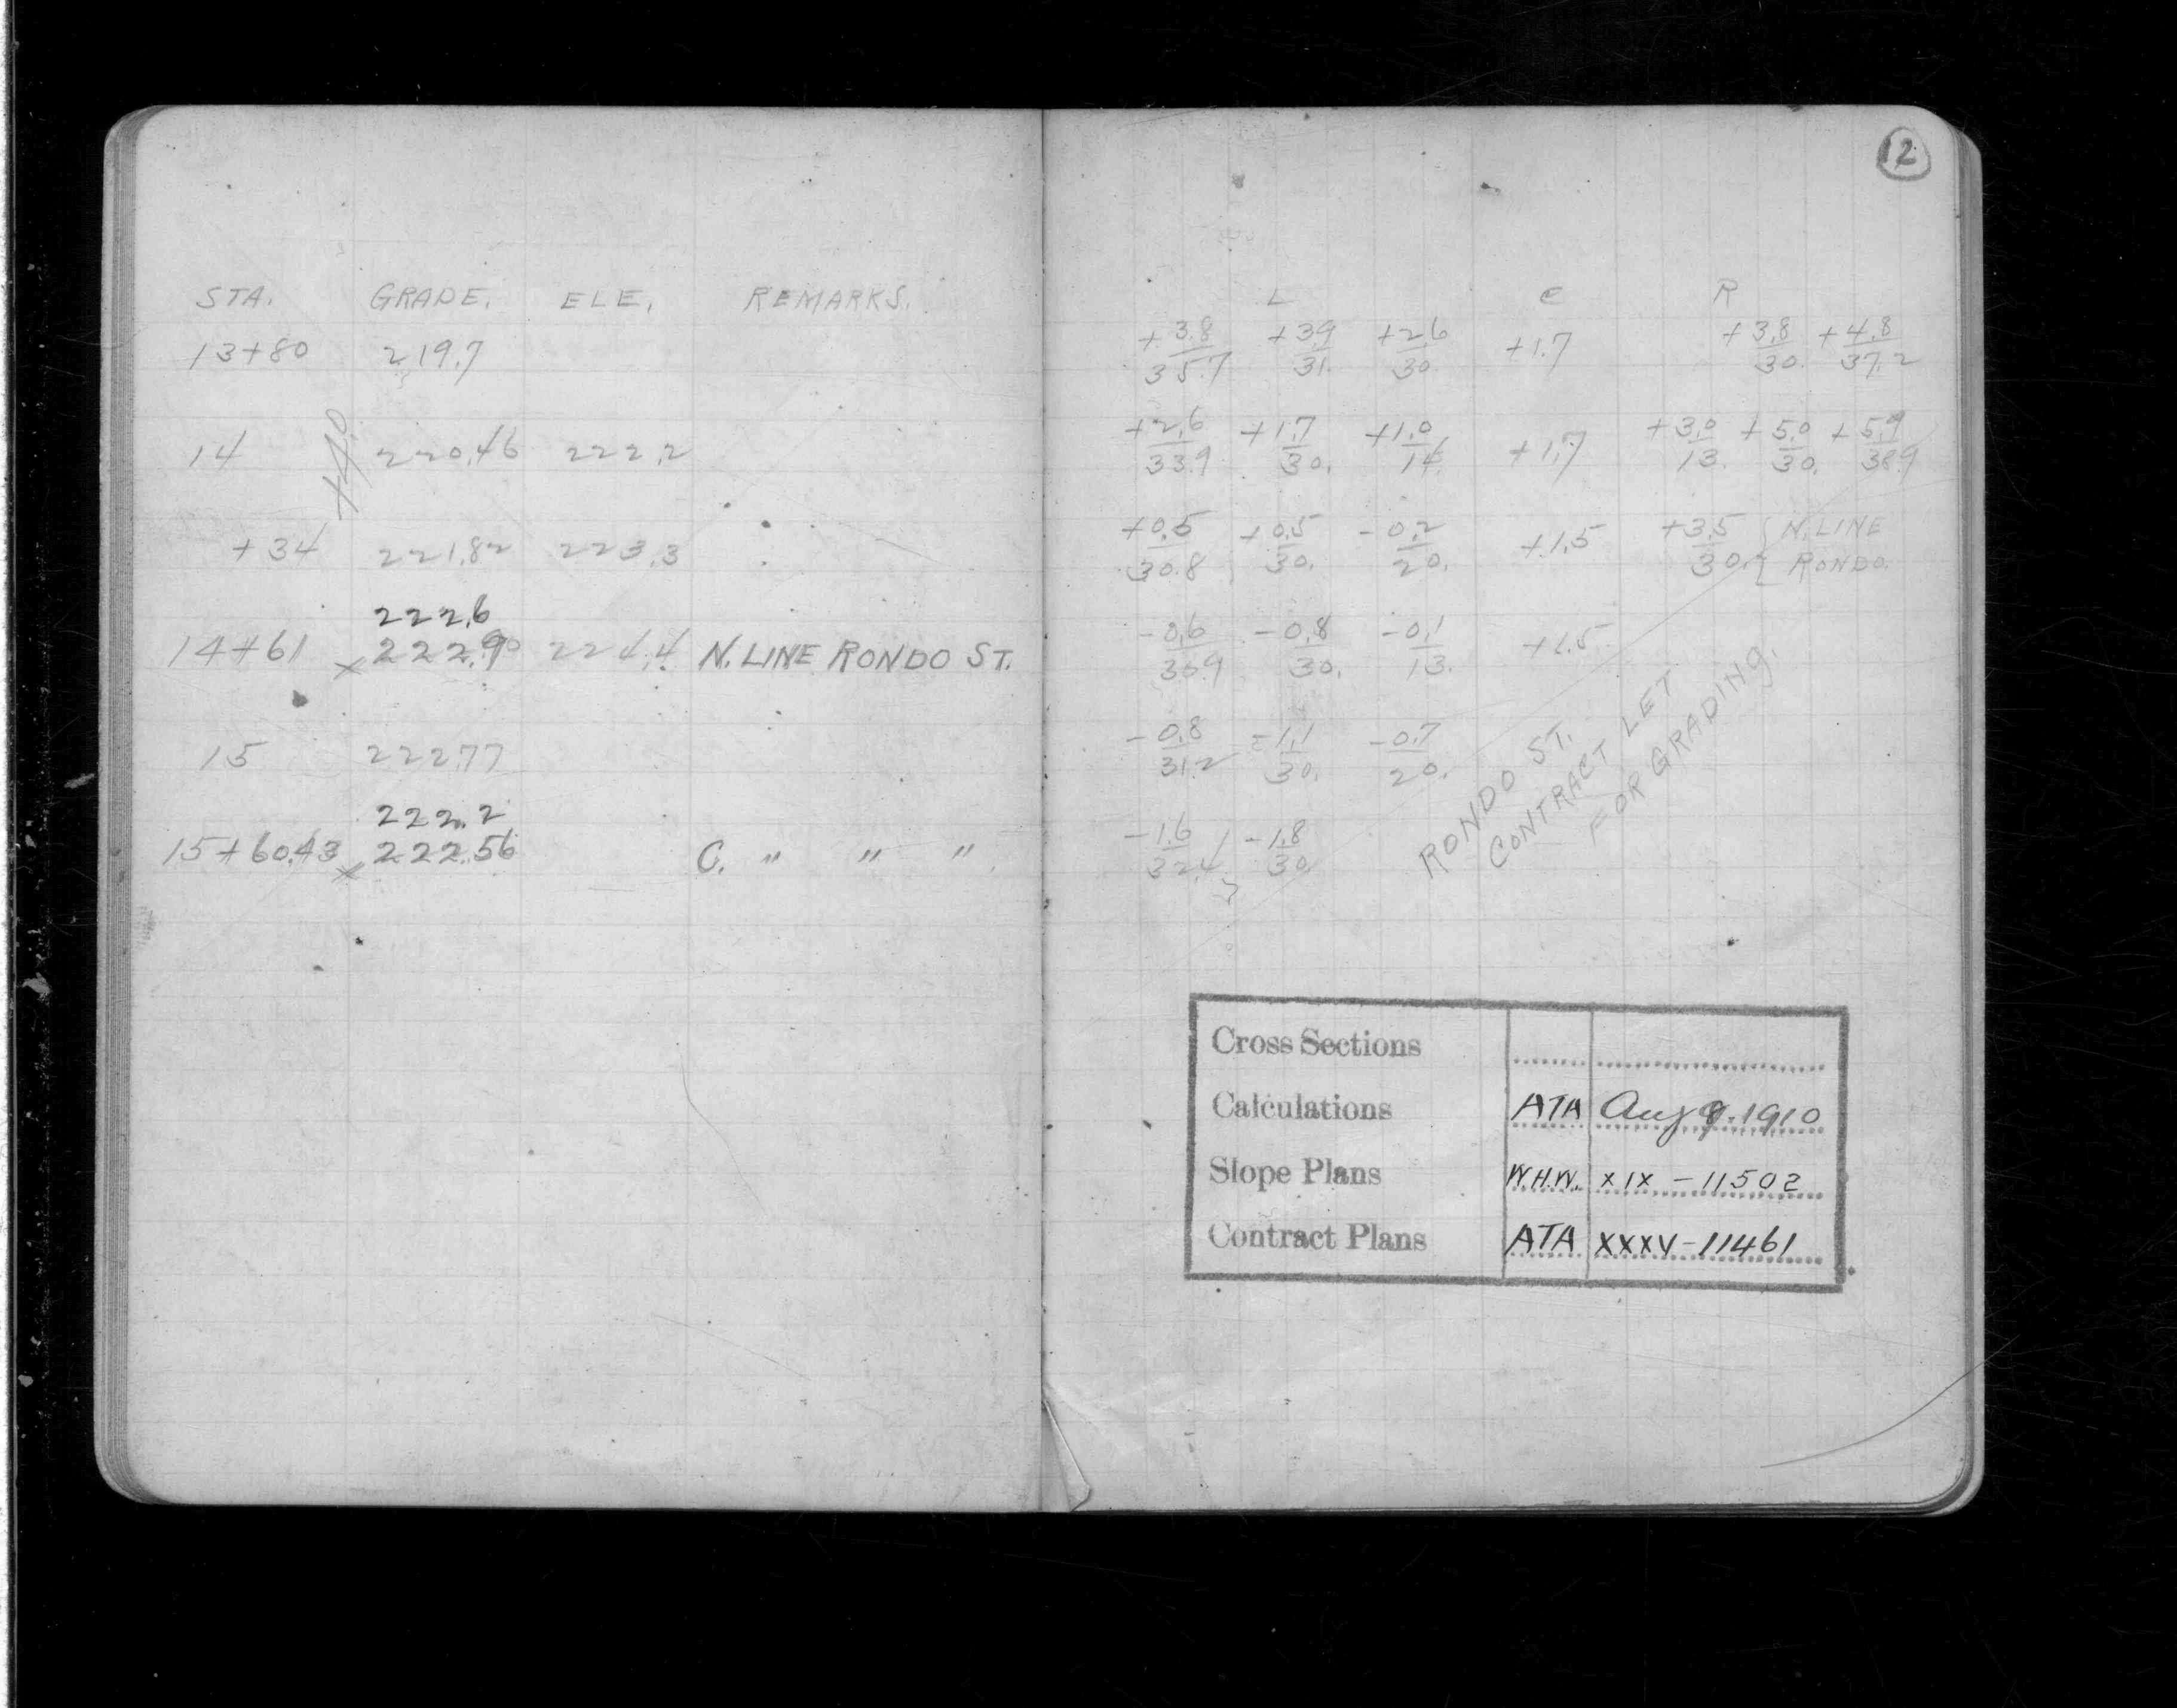 12
STA. GRADE. ELE. REMARKS.
13+80 219.7
14 +4.0 220.46 222.2
+34 221.82 223.3
222.6
14+61 x 222.90 224.4 N. LINE RONDO ST.
15 222.77
222.2
15+60.43 x 222.56 C. " " "
L C R
+3.8 +3.9 +2.6 +1.7 +3.8 +4.8
35.7 31. 30 30. 37.2
+2.6 +1.7 +1.0 +1.7 +3.0 +5.0 +5.9
33.9 30. 14. 13. 30. 38.9
+0.5 +0.5 -0.2 +1.5 +3.5 N. LINE
30.8 30. 20. 30. RONDO.
-0.6 -0.8 -0.1 +1.5
30.9 30. 13.
-0.8 -1.1 -0.7
31.2 30. 20.
-1.6 -1.8
32.4 30.
RONDO ST.
CONTRACT LET
FOR GRADING.
Cross Sections
Calculations ATA Aug 9. 1910
Slope Plans W.H.W. XIX - 11502
Contract Plans ATA XXXV - 11461